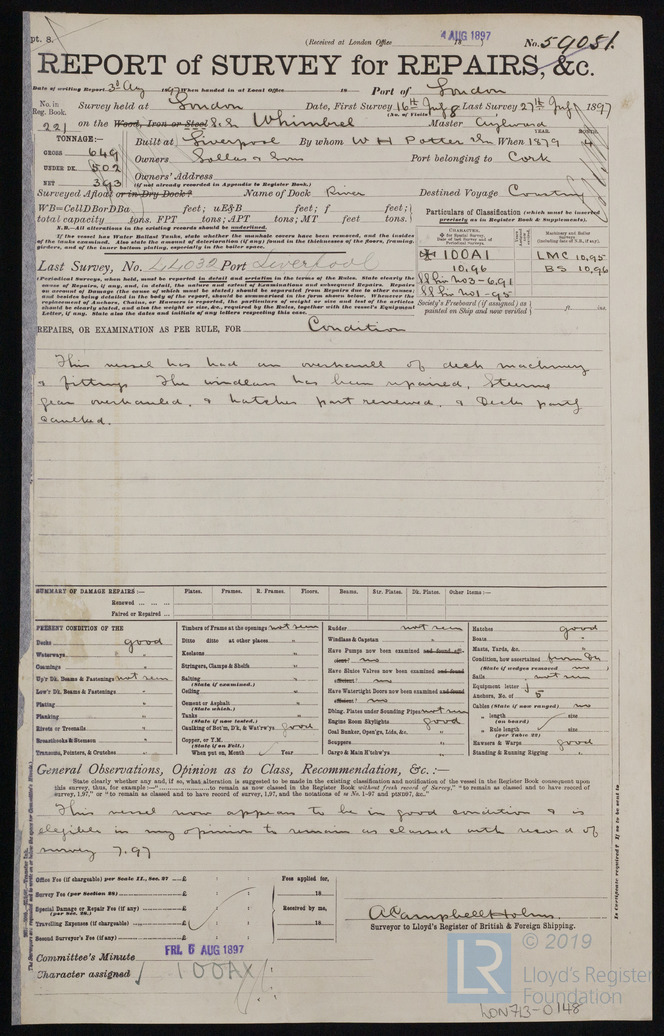 pt. 8.
(Received at London Office
4 AUG 1897
18 )
No. 59081.
REPORT of SURVEY for REPAIRS, &c.
Date of writing Report 3d Aug 1897 When handed in at Local Office 18 Port of London
No. in Reg. Book. Survey held at London Date, First Survey 16th July Last Survey 27th July 1897
(No. of Visits 8
221 on the Wood, Iron or Steel S.S. Whimbrel Master
TONNAGE:— Built at Liverpool By whom W H Potter & Sn When 1879 4
YEAR. MONTH.
GROSS 649 Owners & Sons Port belonging to Cork
UNDER DK. 502 Owners' Address
NET 393 (if not already recorded in Appendix to Register Book.)
Surveyed Afloat or in Dry Dock? Name of Dock River Destined Voyage
WB=CellDBorDBa feet; uE&B feet; f feet;
total capacity tons. FPT tons; APT tons; MT feet tons.
Particulars of Classification (which must be inserted precisely as in Register Book & Supplements).
N.B.—All alterations in the existing records should be underlined.
If the vessel has Water Ballast Tanks, state whether the manhole covers have been removed, and the insides
of the tanks examined. Also state the amount of deterioration (if any) found in the thicknesses of the floors, framing,
girders, and of the inner bottom plating, especially in the boiler space.
CHARACTER.
100A1 LMC 10,95
10,96 BS 10,96
SS Liv No3-6.91
SS Liv No1-95
Last Survey, No. 44032 Port Liverpool
(Periodical Surveys, when held, must be reported in detail and seriatim in the terms of the Rules. State clearly the
causes of Repairs, if any, and, in detail, the nature and extent of Examinations and subsequent Repairs. Repairs
on account of Damage (the cause of which must be stated) should be separated from Repairs due to other causes;
and besides being detailed in the body of the report, should be summarised in the form shown below. Whenever the
replacement of Anchors, Chains, or Hawsers is reported, the particulars of weight or size and test of the articles
should be clearly stated, and also the weight or size, &c., required by the Rules, together with the vessel's Equipment
Letter, if any. State also the dates and initials of any letters respecting this case.
Society's Freeboard (if assigned) as
painted on Ship and now verified ft. in.
REPAIRS, OR EXAMINATION AS PER RULE, FOR Condition
This vessel has had an overhaull of deck machinery
& fittings The windlass has been repaired, Steering
gear overhauled, & hatches part renewed, & Decks partly
caulked.
SUMMARY OF DAMAGE REPAIRS:— Plates. Frames. R. Frames. Floors. Beams. Str. Plates. Dk. Plates. Other Items:—
Renewed ... ...
Faired or Repaired ...
PRESENT CONDITION OF THE
Decks good
Waterways "
Comings "
Up'r Dk. Beams & Fastenings not seen
Low'r Dk. Beams & Fastenings "
Plating "
Planking "
Rivets or Treenails "
Breasthooks & Stemson "
Transoms, Pointers, & Crutches "
Timbers of Frame at the openings not seen
Ditto ditto at other places "
Keelsons "
Stringers, Clamps & Shelfs "
Salting "
(State if examined.)
Ceiling "
Cement or Asphalt "
(State which.)
Tanks "
(State if now tested.)
Caulking of Bot'm, D'k, & Wat'rw'ys good
Copper, or Y.M.
(State if on Felt.)
When put on, Month Year
Rudder not seen
Windlass & Capstan "
Have Pumps now been examined and found efficient? no
Have Sluice Valves now been examined and found efficient? no
Have Watertight Doors now been examined and found efficient? no
Dbling. Plates under Sounding Pipes not seen
Engine Room Skylights good
Coal Bunker, Open'gs, Lids, &c. "
Scuppers "
Cargo & Main H'tchw'ys "
Hatches good
Boats "
Masts, Yards, &c. "
Condition, how ascertained from Dk
(State if wedges removed no )
Sails not seen
Equipment letter
Anchors, No. of 5
Cables (State if now ranged) no
" length size
(on board)
" Rule length size
(per Table 22)
Hawsers & Warps good
Standing & Running Rigging "
General Observations, Opinion as to Class, Recommendation, &c. :—
State clearly whether any, and if so, what alteration is suggested to be made in the existing classification and notification of the vessel in the Register Book consequent upon
this survey, thus, for example :—"..................to remain as now classed in the Register Book without fresh record of Survey," "to remain as classed and to have record of
survey, 1,97," or "to remain as classed and to have record of survey, 1,97, and the notations of ss No. 1-97 and ptND97, &c.,"
This vessel now appears to be in good condition & is
eligible in my opinion to remain as classed with record of
survey 7.97
Office Fee (if chargeable) per Scale II., Sec. 27 £
Survey Fee (per Section 28) £
Special Damage or Repair Fee (if any) £
(per Sec. 28.)
Travelling Expenses (if chargeable) £
Second Surveyor's Fee (if any) £
Fees applied for,
18
Received by me,
18
A Campbell Holms
Surveyor to Lloyd's Register of British & Foreign Shipping.
Committee's Minute FRI. 6 AUG 1897
Character assigned 100A1
LR
© 2019
Lloyd's Register
Foundation
LON713-0148